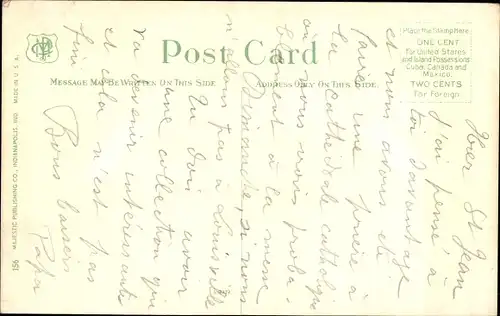 Post Card
MESSAGE MAY BE WRITTEN ON THIS SIDE
ADDRESS ONLY ON THIS SIDE
Place the Stamp here
ONE CENT
For United States
and Island Possessions
Cuba, Canada and
Mexico.
TWO CENTS
For Foreign
156 MAJESTIC PUBLISHING CO., INDIANAPOLIS, IND. MADE IN U.S.A.
Hier St Jean
j'ai pensé à
toi davantage
et nous avons été
faire une prière à
la cathédrale catholique
où nous irons proba-
blement à la messe
Dimanche, si nous
n'allons pas à Louisville
Tu dois avoir
une collection qui
va devenir intéressante
et cela n'est pas
fini
Bons baisers
Papa